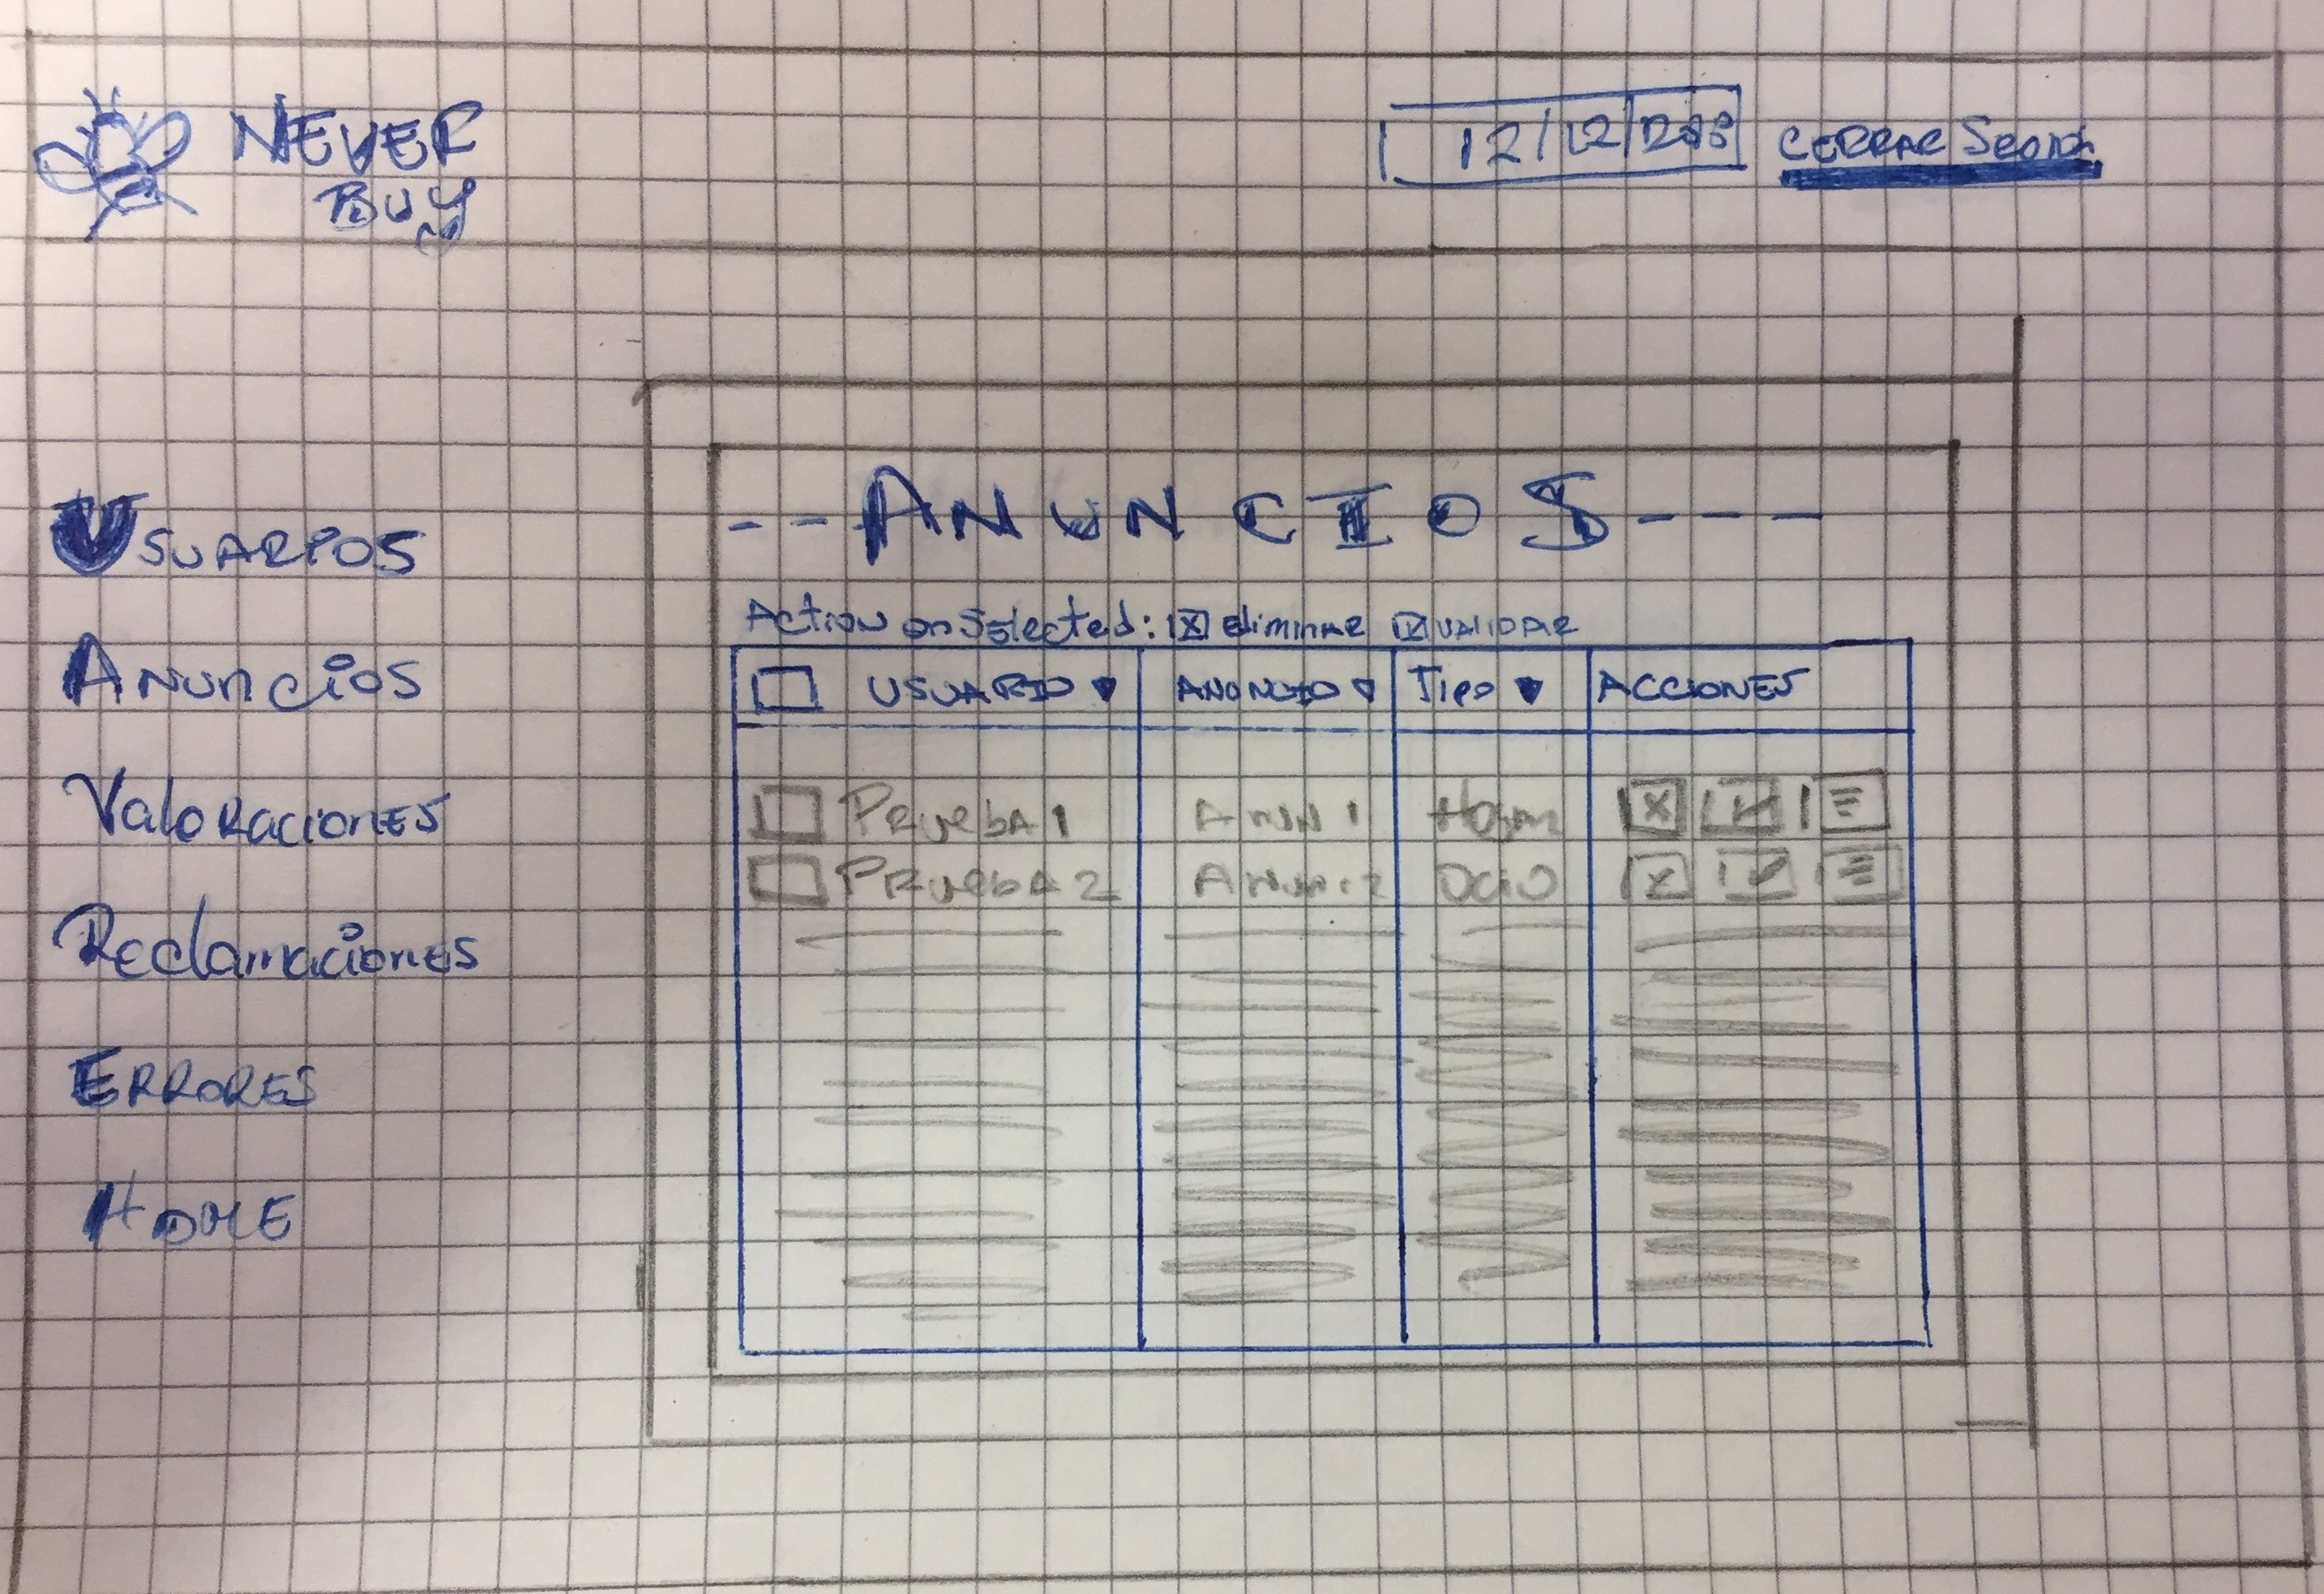 NEVER
BUY
12/12/2018 CERRAR Sesion
USUARIOS
Anuncios
Valoraciones
Reclamaciones
ERRORES
HOME
--ANUNCIOS---
Action on Selected: Eliminar VALIDAR
USUARIO ANUNCIO Tipo ACCIONES
Prueba 1 Anun 1 Hogar
Prueba 2 Anun 2 Ocio